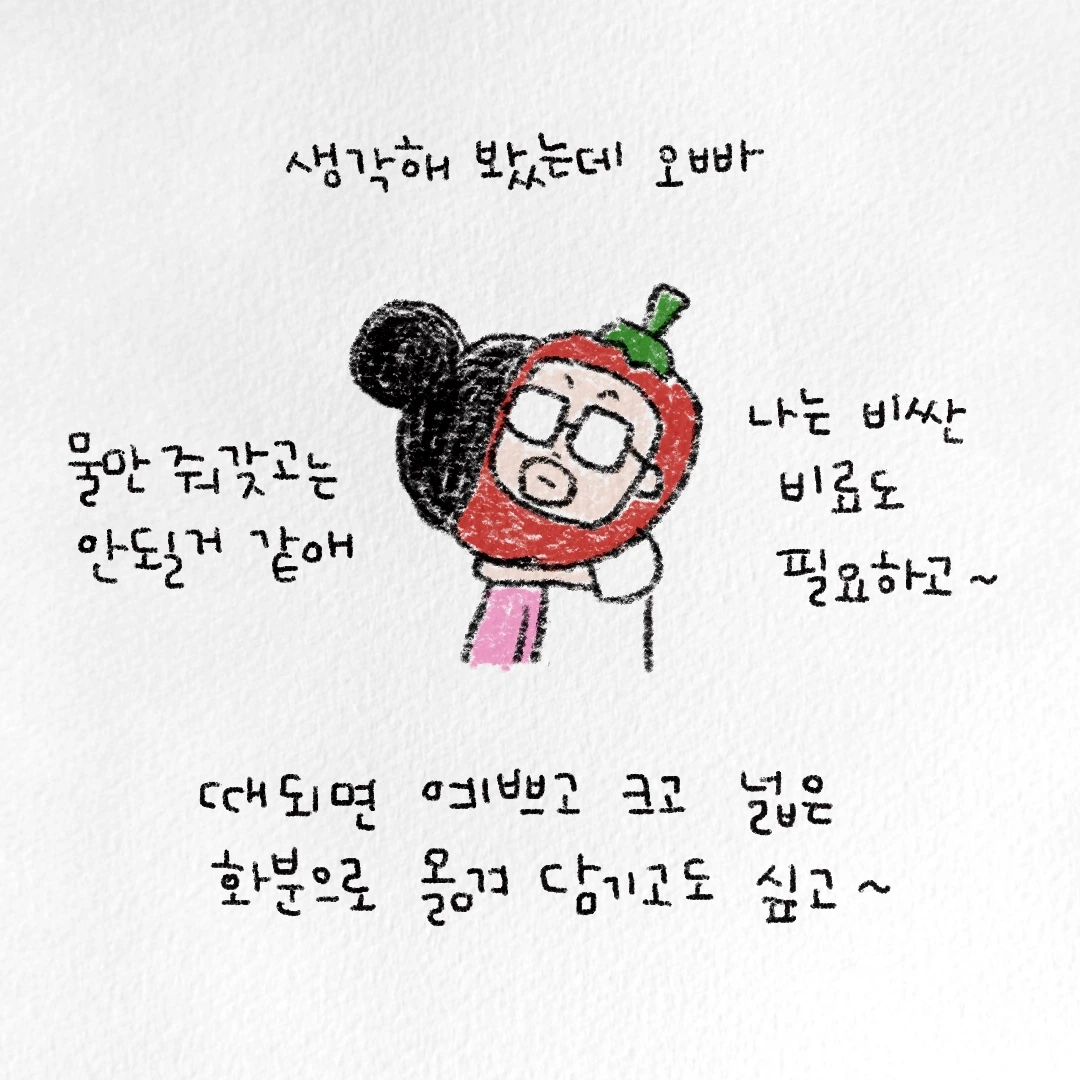 생각해 봤는데 오빠
물만 줘갖고는
안될거 같애
나는 비싼
비료도
필요하고~
때되면 예쁘고 크고 넓은
화분으로 옮겨 담기고도 싶고~